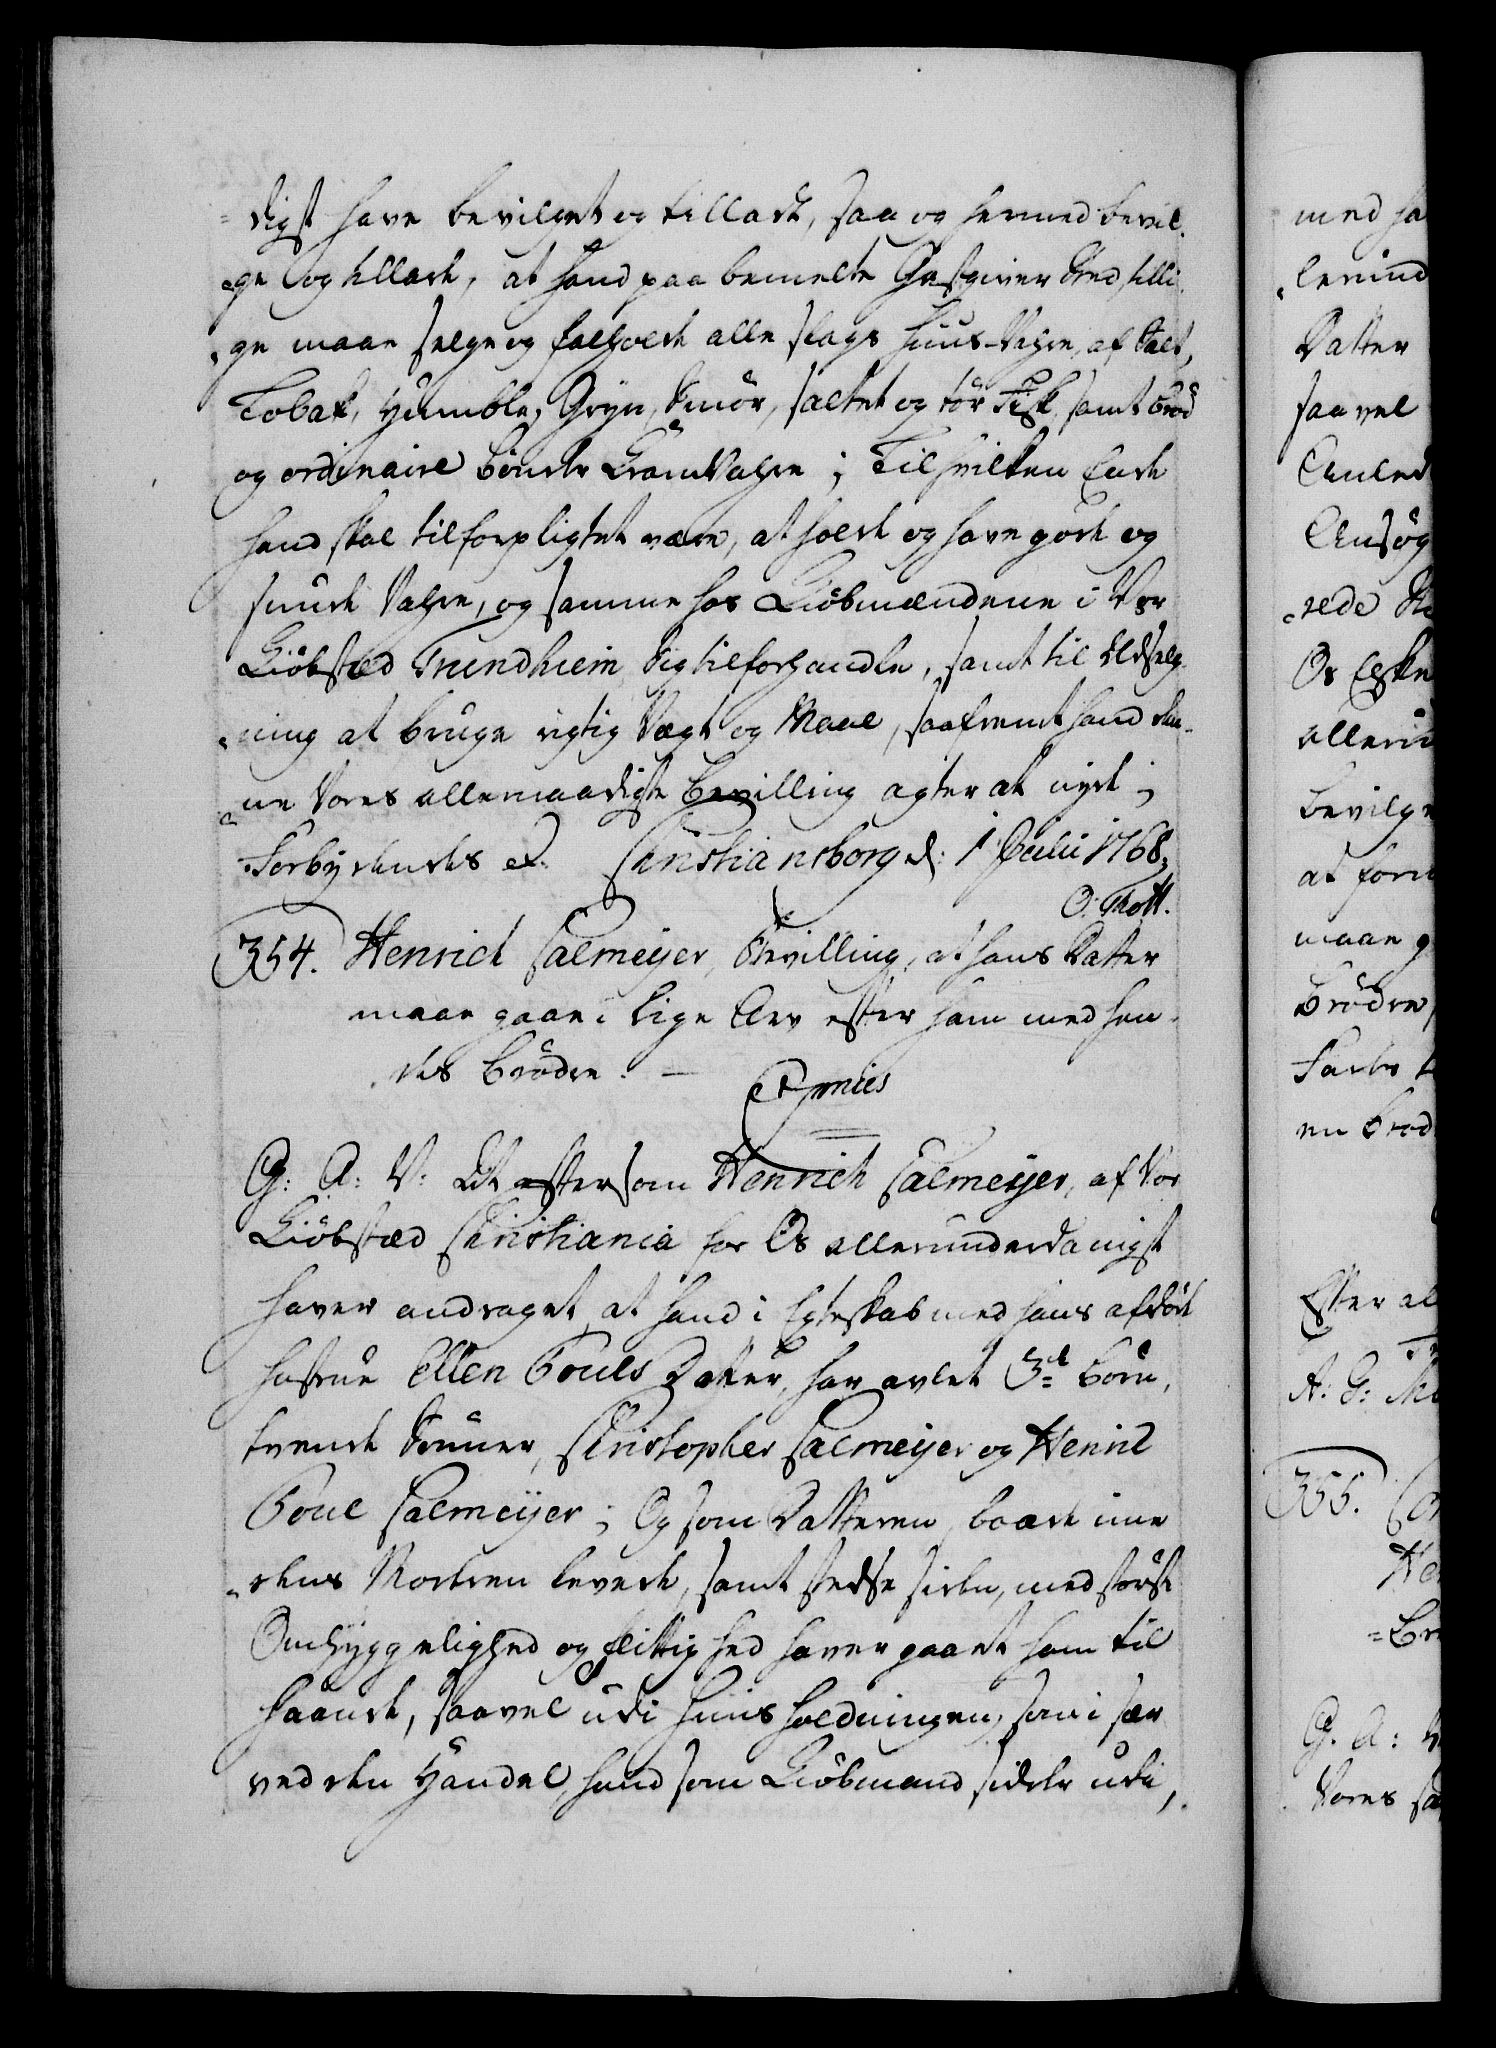 =digst have bevilget og tilladt, saa og hermed bevil-
=ge og tillade, at hand paa bemelte Gæstgiver Sted, tilli-
=ge maae selge og falholde alle slags Huus-Vahre, af Salt,
Tobak, Humble, Gryn, Smör, saltet og tör Fisk, samt Bröd
og ordinaire Bönder KramVahre; Til hvilken Ende
hand skal tilforpligtet være, at holde og have gode og
sunde Vahre, og samme hos Kiöbmændene i Vor
Kiöbstæd Trundhiem sig tilforhandle, samt til Udselg-
=ning at bruge rigtig Vægt og Maal, saafremt hand den-
=ne Vores allernaadigste Bevilling agter at nyde;
Forbydendes &. Christiansborg d: 1 Julii 1768.
O: Thott.
354. Henrich Calmeyer, Bevilling, at hans Datter
maae gaae i lige Arv efter ham med hen-
des Brödre. —
C. 5 mius
G: A: V: At eftersom Henrich Calmeyer, af Vor
Kiöbstæd Christiania for Os allerunderdanigst
haver andraget, at hand i Egteskab med hans afdöde
Hustrue Ellen Pouls Datter, har avlet 3de Börn,
tvende Sönner, Christopher Calmeyer og Henric
Poul Calmeyer; Og som Datteren, baade ime-
=dens Moderen levede, samt stedse siden, med störste
Omhyggelighed og flittighed haver gaaet ham til
haande, saavel udi Huusholdningen, som i sær
ved den Handel, hand som Kiöbmand sidder udi,
med ha
lerund
Datter
saavel
Anled
Ansög
=rede
Os
allern
bevilge
at for
maae g
Brödre,
en Brod
Efter al
A: G:
355.
G. A: V
Vores